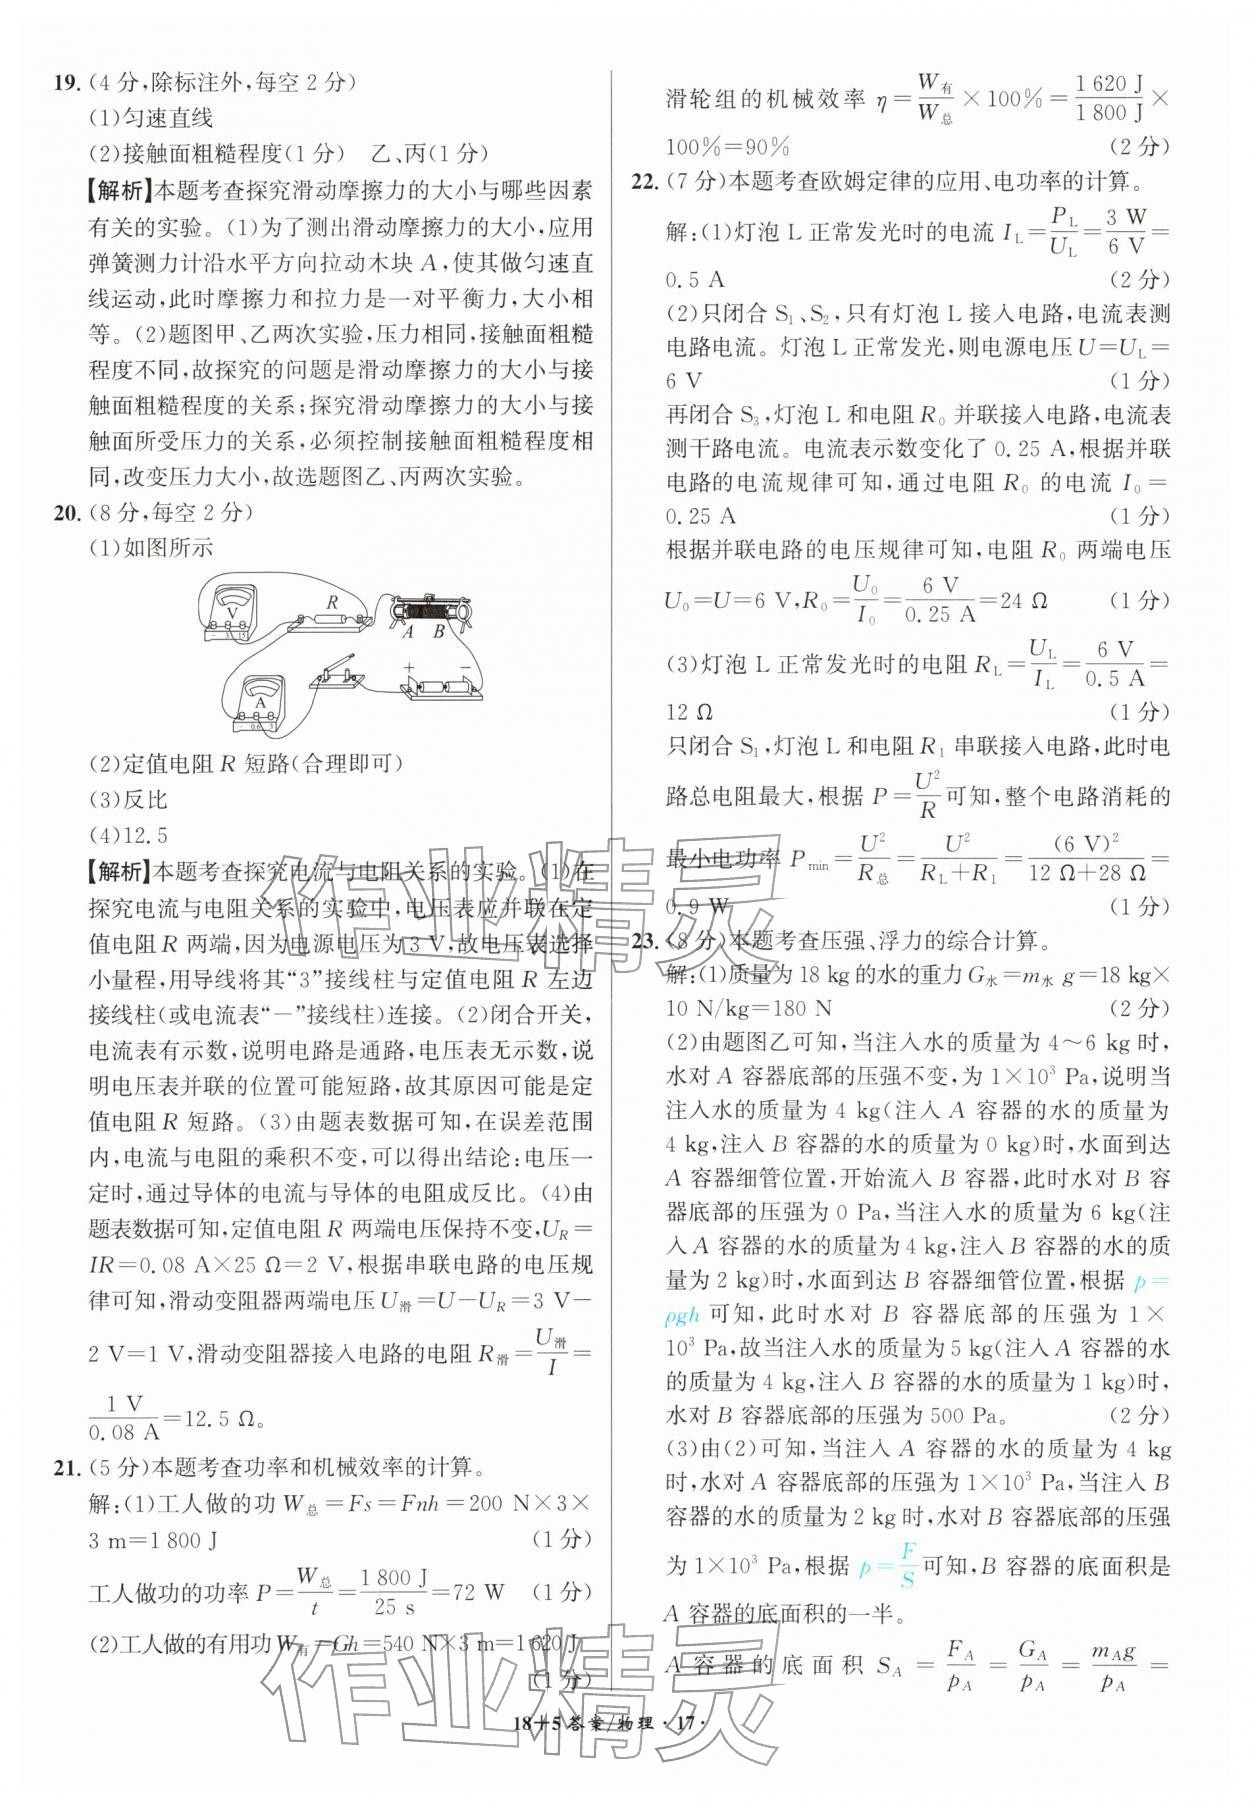 19. (4 分,除标注外,每空 2 分)
(1)匀速直线
(2)接触面粗糙程度(1 分)　乙、丙(1 分)
【解析】本题考查探究滑动摩擦力的大小与哪些因素
有关的实验。(1)为了测出滑动摩擦力的大小,应用
弹簧测力计沿水平方向拉动木块 A,使其做匀速直
线运动,此时摩擦力和拉力是一对平衡力,大小相
等。(2)题图甲、乙两次实验,压力相同,接触面粗糙
程度不同,故探究的问题是滑动摩擦力的大小与接
触面粗糙程度的关系;探究滑动摩擦力的大小与接
触面所受压力的关系,必须控制接触面粗糙程度相
同,改变压力大小,故选题图乙、丙两次实验。
20. (8 分,每空 2 分)
(1)如图所示
V
− 3 15
R
A B
A
− 0.6 3
+ −
(2)定值电阻 R 短路(合理即可)
(3)反比
(4)12.5
【解析】本题考查探究电流与电阻关系的实验。(1)在
探究电流与电阻关系的实验中,电压表应并联在定
值电阻 R 两端,因为电源电压为 3 V,故电压表选择
小量程,用导线将其“3”接线柱与定值电阻 R 左边
接线柱(或电流表“−”接线柱)连接。(2)闭合开关,
电流表有示数,说明电路是通路,电压表无示数,说
明电压表并联的位置可能短路,故其原因可能是定
值电阻 R 短路。(3)由题表数据可知,在误差范围
内,电流与电阻的乘积不变,可以得出结论:电压一
定时,通过导体的电流与导体的电阻成反比。(4)由
题表数据可知,定值电阻 R 两端电压保持不变,U_R=
IR=0.08 A×25 Ω=2 V,根据串联电路的电压规
律可知,滑动变阻器两端电压 U滑=U−U_R=3 V−
2 V=1 V,滑动变阻器接入电路的电阻 R滑=U滑/I=
1 V/0.08 A=12.5 Ω。
21. (5 分)本题考查功率和机械效率的计算。
解:(1)工人做的功 W总=Fs=Fnh=200 N×3×
3 m=1 800 J (1 分)
工人做功的功率 P=W总/t=1 800 J/25 s=72 W (1 分)
(2)工人做的有用功 W有=Gh=540 N×3 m=1 620 J
(1 分)
滑轮组的机械效率 η=W有/W总×100%=1 620 J/1 800 J×
100%=90% (2 分)
22. (7 分)本题考查欧姆定律的应用、电功率的计算。
解:(1)灯泡 L 正常发光时的电流 I_L=P_L/U_L=3 W/6 V=
0.5 A (2 分)
(2)只闭合 S₁、S₂,只有灯泡 L 接入电路,电流表测
电路电流。灯泡 L 正常发光,则电源电压 U=U_L=
6 V (1 分)
再闭合 S₃,灯泡 L 和电阻 R₀ 并联接入电路,电流表
测干路电流。电流表示数变化了 0.25 A,根据并联
电路的电流规律可知,通过电阻 R₀ 的电流 I₀=
0.25 A (1 分)
根据并联电路的电压规律可知,电阻 R₀ 两端电压
U₀=U=6 V,R₀=U₀/I₀=6 V/0.25 A=24 Ω (1 分)
(3)灯泡 L 正常发光时的电阻 R_L=U_L/I_L=6 V/0.5 A=
12 Ω (1 分)
只闭合 S₁,灯泡 L 和电阻 R₁ 串联接入电路,此时电
路总电阻最大,根据 P=U²/R可知,整个电路消耗的
最小电功率 P_min=U²/R总=U²/(R_L+R₁)=(6 V)²/(12 Ω+28 Ω)=
0.9 W (1 分)
23. (8 分)本题考查压强、浮力的综合计算。
解:(1)质量为 18 kg 的水的重力 G水=m水 g=18 kg×
10 N/kg=180 N (2 分)
(2)由题图乙可知,当注入水的质量为 4～6 kg 时,
水对 A 容器底部的压强不变,为 1×10³ Pa,说明当
注入水的质量为 4 kg(注入 A 容器的水的质量为
4 kg,注入 B 容器的水的质量为 0 kg)时,水面到达
A 容器细管位置,开始流入 B 容器,此时水对 B 容
器底部的压强为 0 Pa,当注入水的质量为 6 kg(注
入 A 容器的水的质量为 4 kg,注入 B 容器的水的质
量为 2 kg)时,水面到达 B 容器细管位置,根据 p=
ρgh 可知,此时水对 B 容器底部的压强为 1×
10³ Pa,故当注入水的质量为 5 kg(注入 A 容器的水
的质量为 4 kg,注入 B 容器的水的质量为 1 kg)时,
水对 B 容器底部的压强为 500 Pa。 (2 分)
(3)由(2)可知,当注入 A 容器的水的质量为 4 kg
时,水对 A 容器底部的压强为 1×10³ Pa,当注入 B
容器的水的质量为 2 kg 时,水对 B 容器底部的压强
为 1×10³ Pa,根据 p=F/S可知,B 容器的底面积是
A 容器的底面积的一半。
A 容器的底面积 S_A=F_A/p_A=G_A/p_A=m_A g/p_A=
18+5 答案/物理·17·
作业精灵
作业精灵